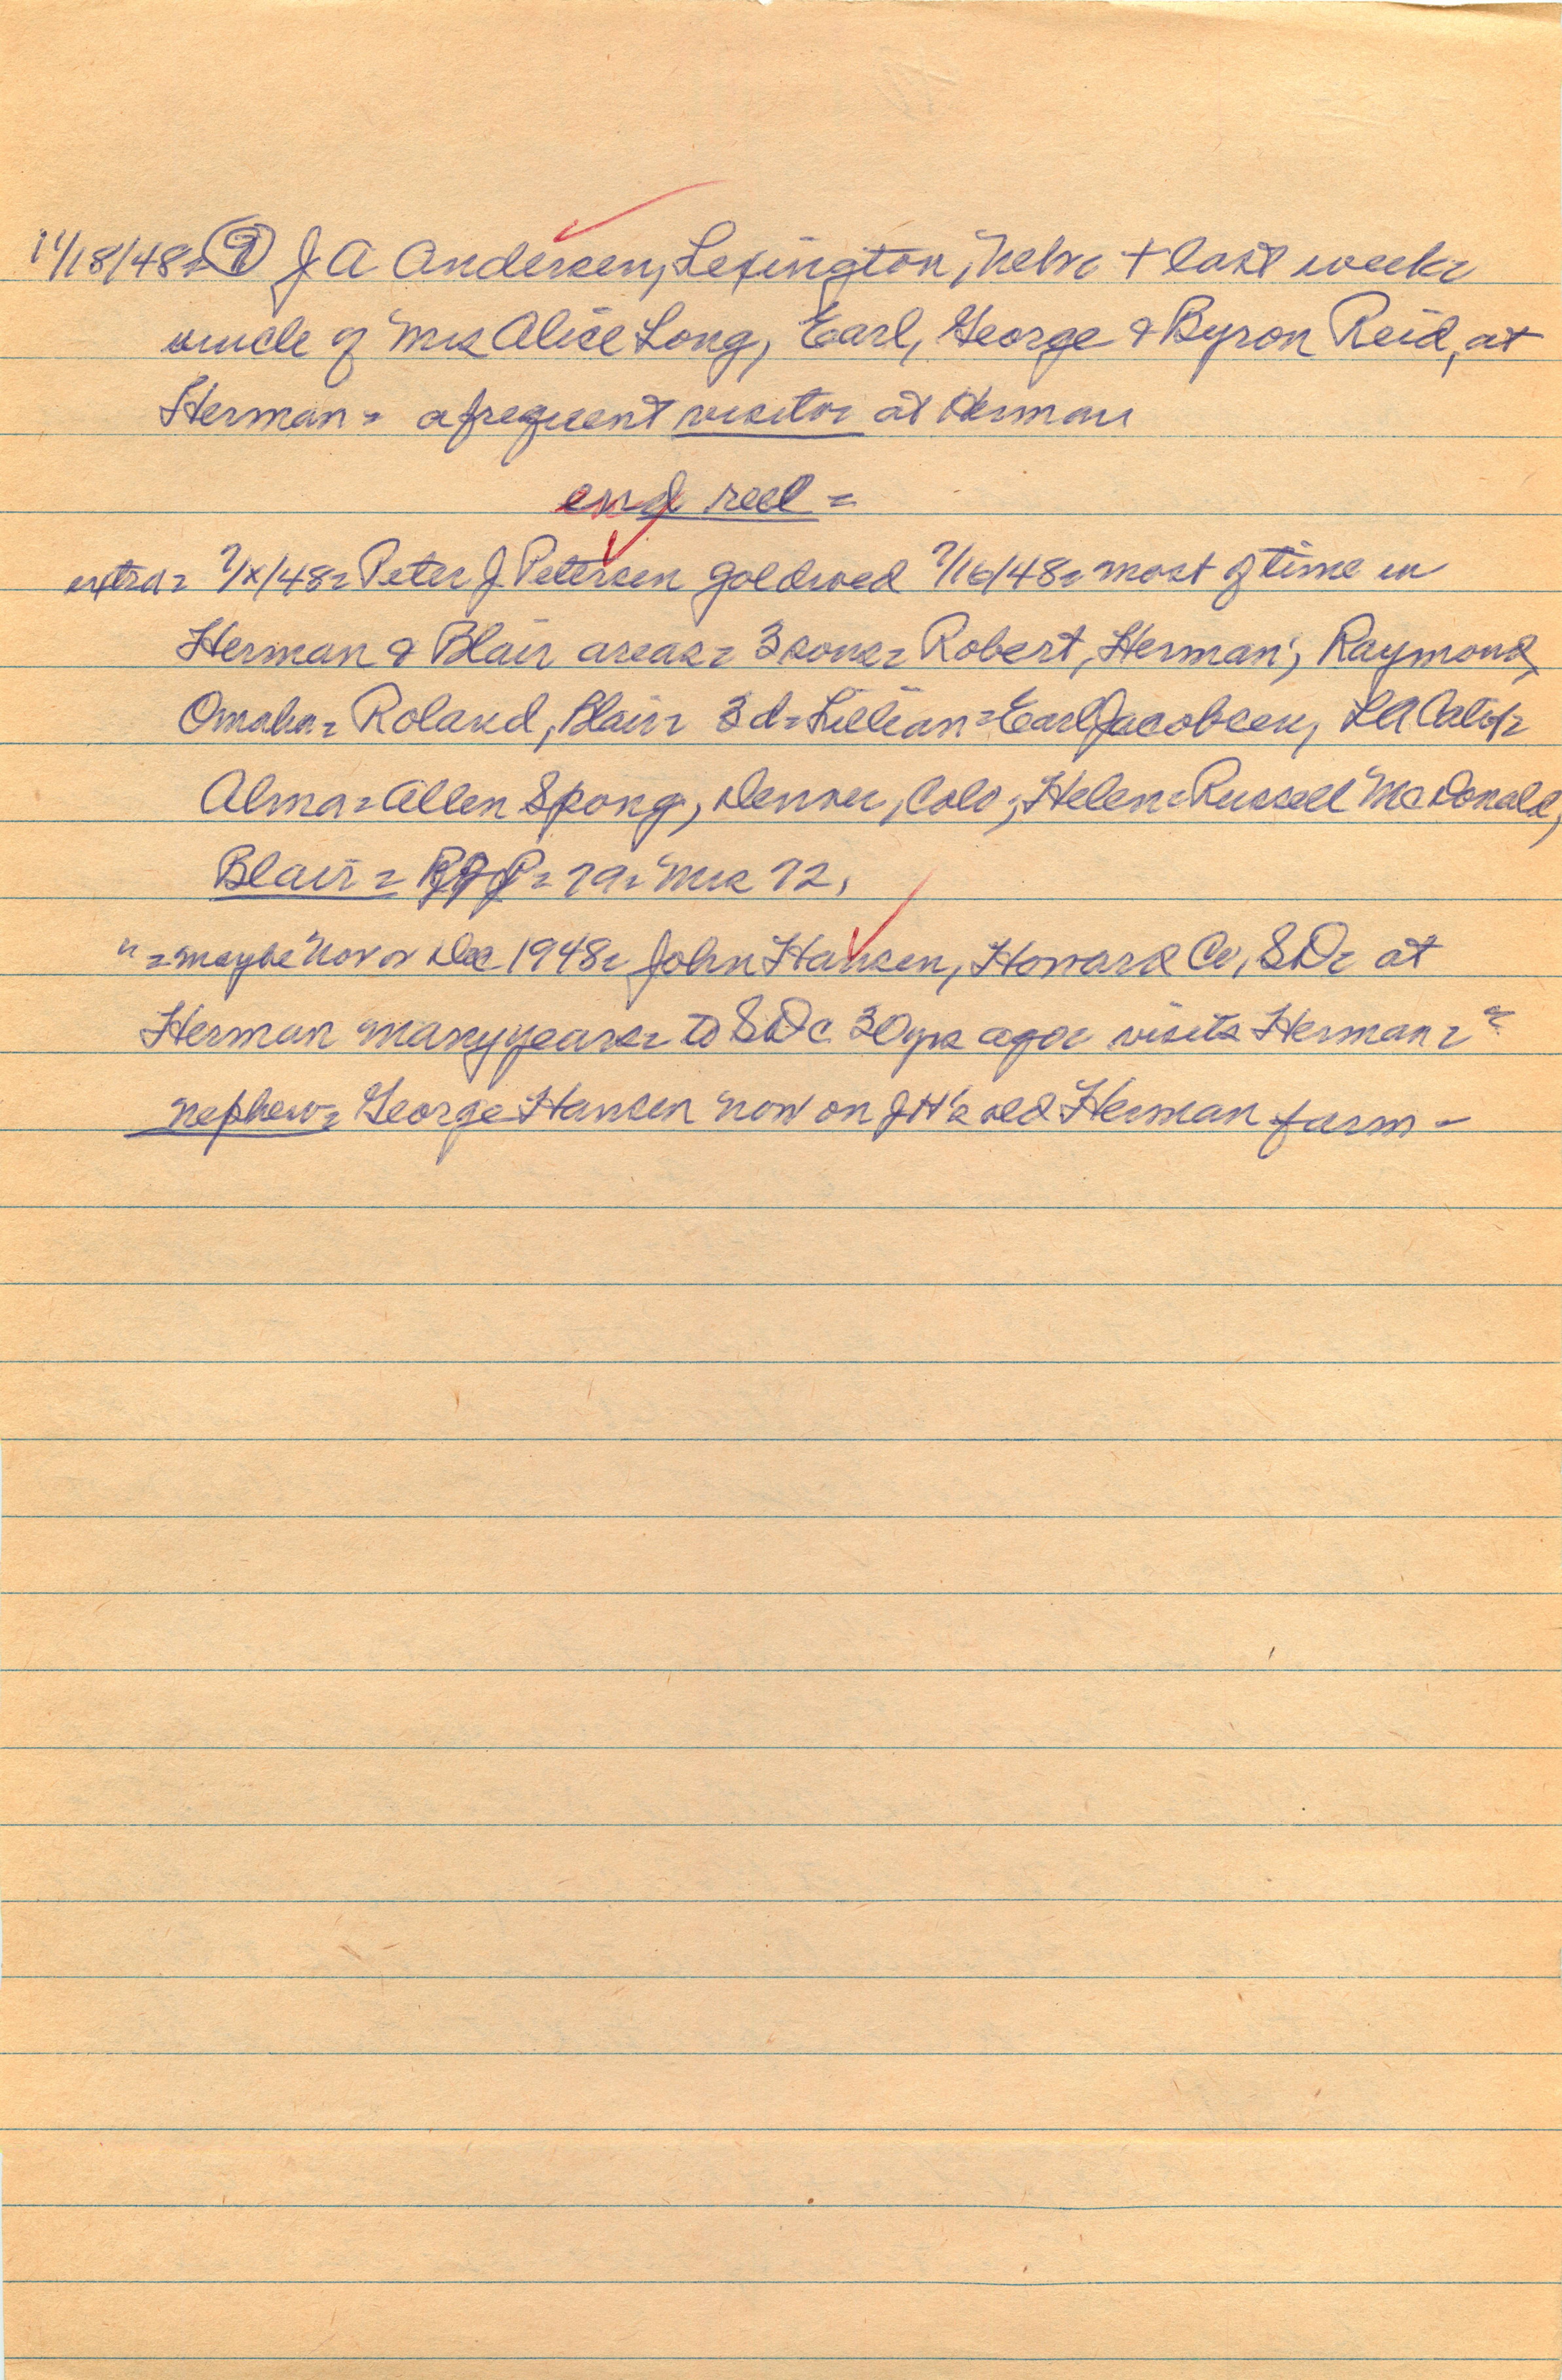 11/18/48 = ⑨ J A Andersen, Lexington, Nebr + last week =
uncle of Mrs Alice Long, Earl, George & Byron Reid, at
Herman = a frequent visitor at Herman
end reel =
extra = 7/x/48 = Peter J Petersen goldwed 7/16/48 = most of time in
Herman & Blair areas = 3 sons = Robert, Herman; Raymond,
Omaha = Roland, Blair = 3 d = Lillian = Earl Jacobsen, LA Calif =
Alma = Allen Spong, Denver, Colo; Helen = Russell McDonald,
Blair = PJP = 79 = Mrs 72,
" = maybe Nov or Dec 1948 = John Hansen, Howard Co, SD = at
Herman many years = to SD c 30 yrs ago = visits Herman =
nephew = George Hansen now on JH's old Herman farm -